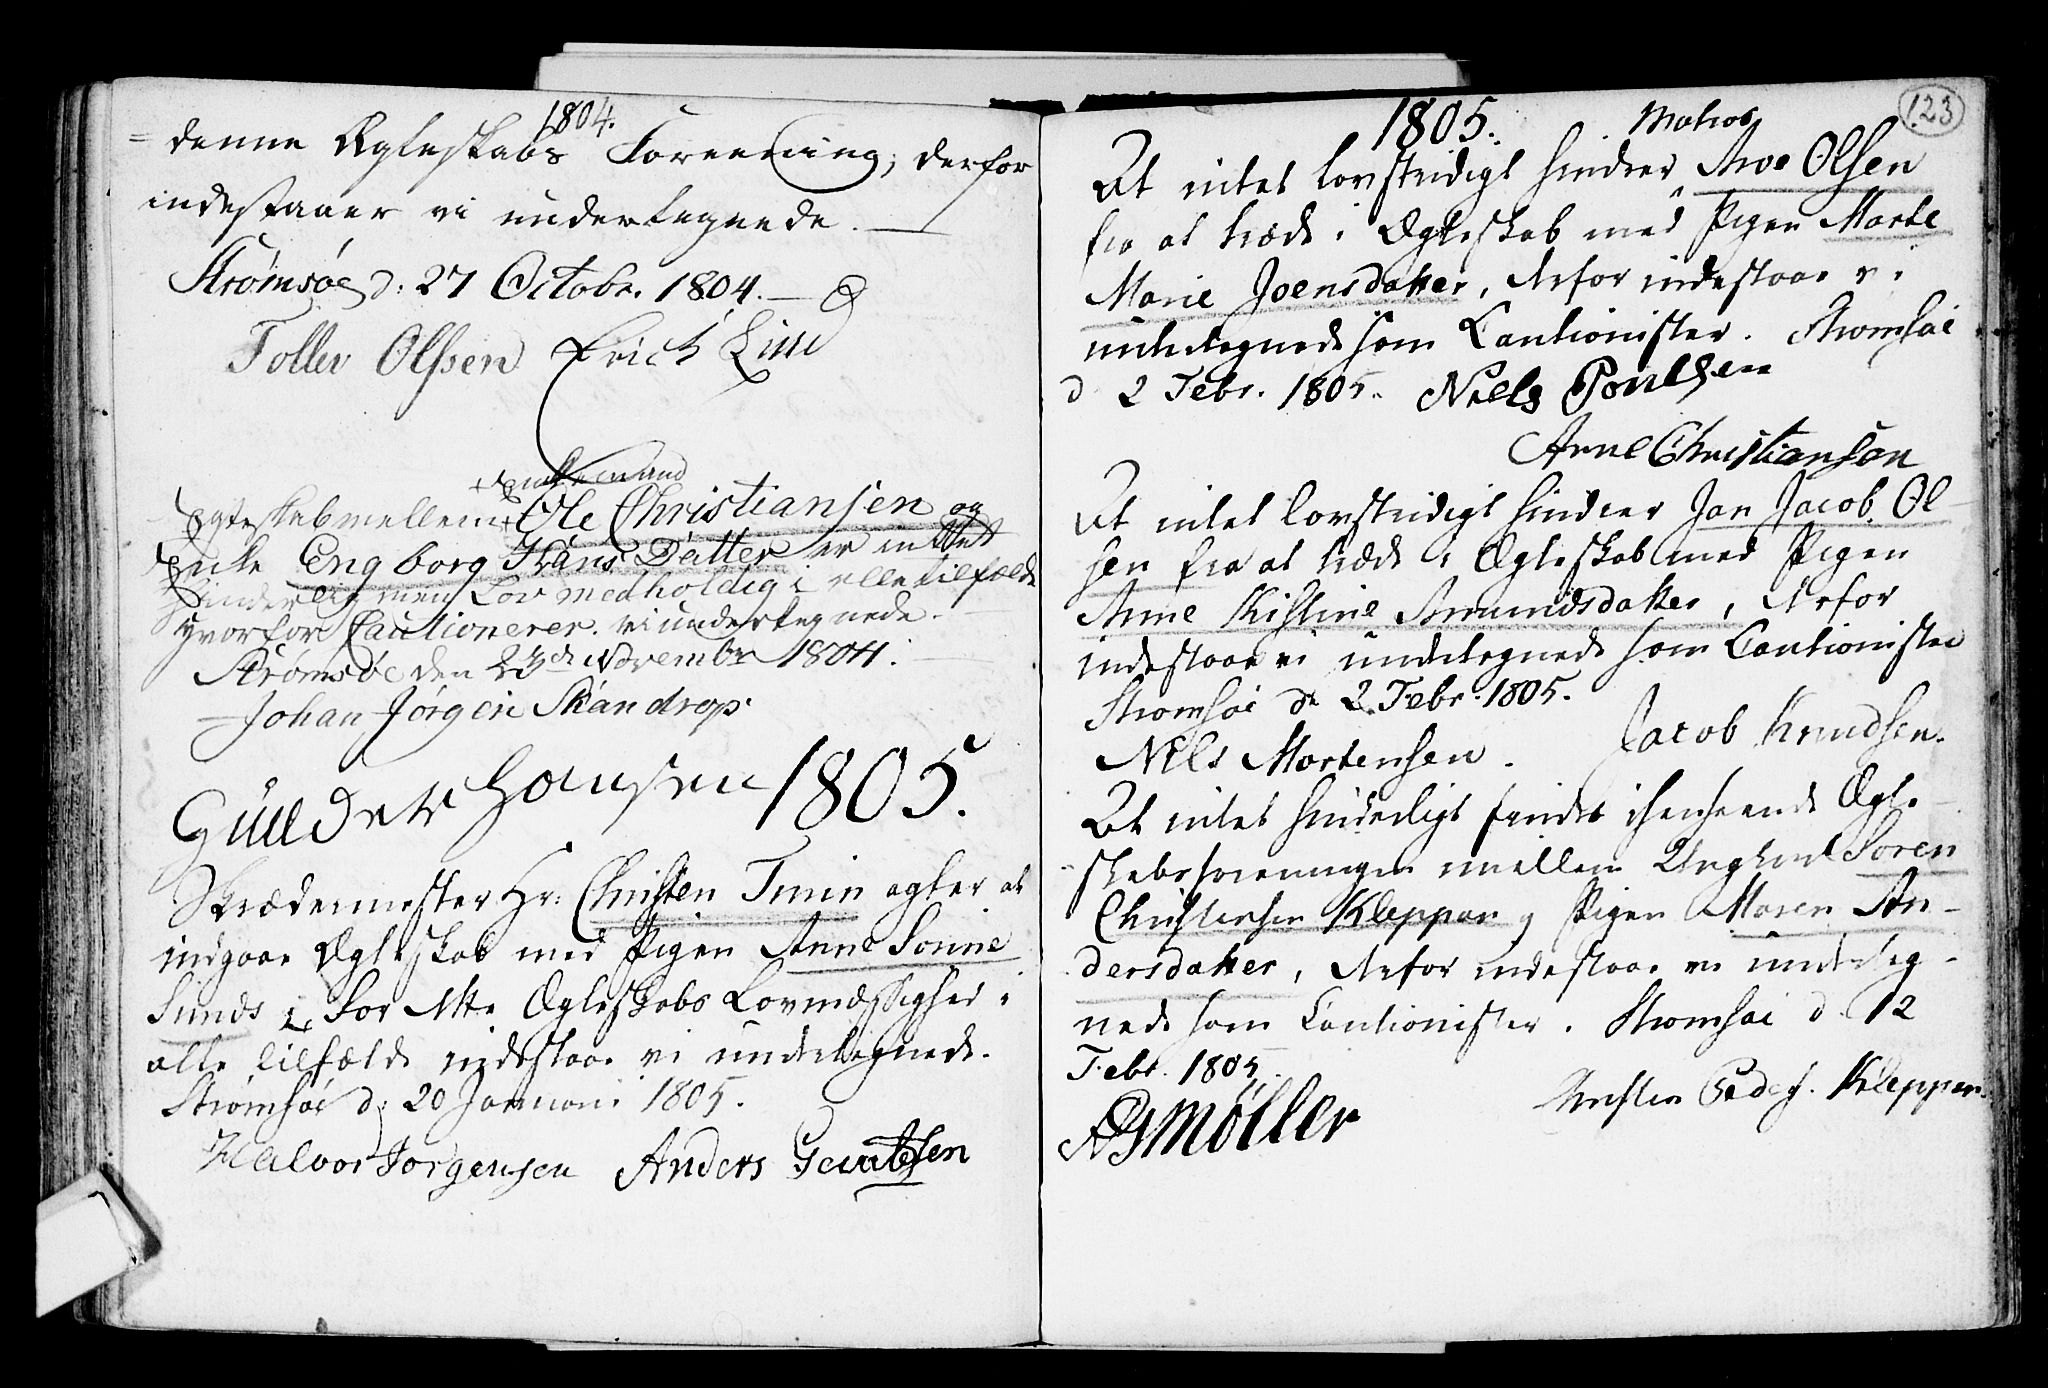 1804.
denne Ægteskabs Foreening, derfor
indestaaer vi undertegnede.
Strømsøe d: 27 Octobr. 1804.
Tollev Olssen Erich Lind
Enkemand
Egteskab mellem Ole Christiansen og
Enke Engborg Hans Datter er inttet
hinderlig men Lov medholdig i alle tilfælde
hvorfor Cautionerer vi undertegnede.
Strømsøe den 23de Novembr 1804.
Johan Jørgen Skandrop.
Gulder Hansen
1805.
Skrædermester Hr: Christen Tmin agter at
indgaae Ægteskab med Pigen Anne Sonne
Sunds For dette Ægteskabs Lovmæssighed i
alle tilfælde indestaae vi undertegnede.
Strømsøe d: 20 Januari 1805.
Halvor Jorgensen Anders Gevatsen
123
1805.
Matros
At intet lovstridigt hindrer Arve Olsen
fra at træde i Ægteskab med Pigen Marte
Marie Joensdatter, derfor indestaae vi
undertegnede som Cautionister. Stromsøe
d 2 Febr. 1805. Niels Poulsen
Arne Christiansøn
At intet lovstridigt hindrer Jan Jacob Ol-
sen fra at træde i Ægteskab med Pigen
Anne Kistine Amundsdatter, derfor
indestaae vi undertegnede som Cautionister
Stromsøe de 2. Febr. 1805.
Nils Mortensen. Jacob Knudsen.
At intet hinderligt findes ihenseende Ægte-
skabsforeningen mellem Ungkarl Soren
Christensen Kleppen og Pigen Maren An-
dersdatter, derfor indestaae vi underteg-
nede som Cautionister. Stromsøe d. 12
Febr. 1805.
Christen Peders. Kleppen.
AGMøller